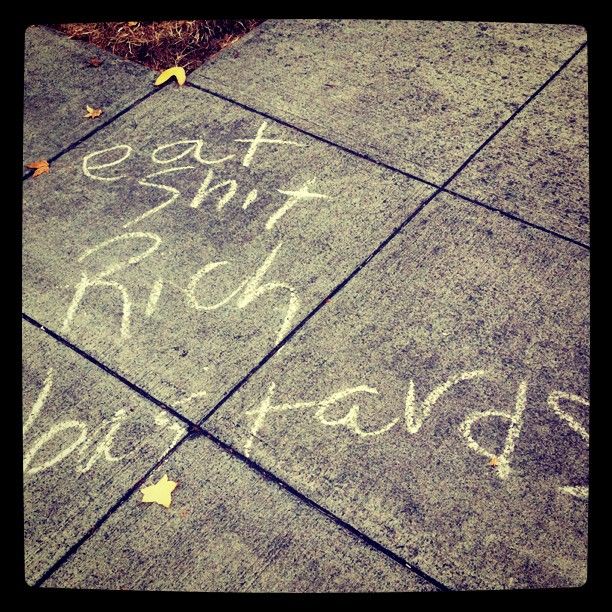 eat
shit
Rich
bastards